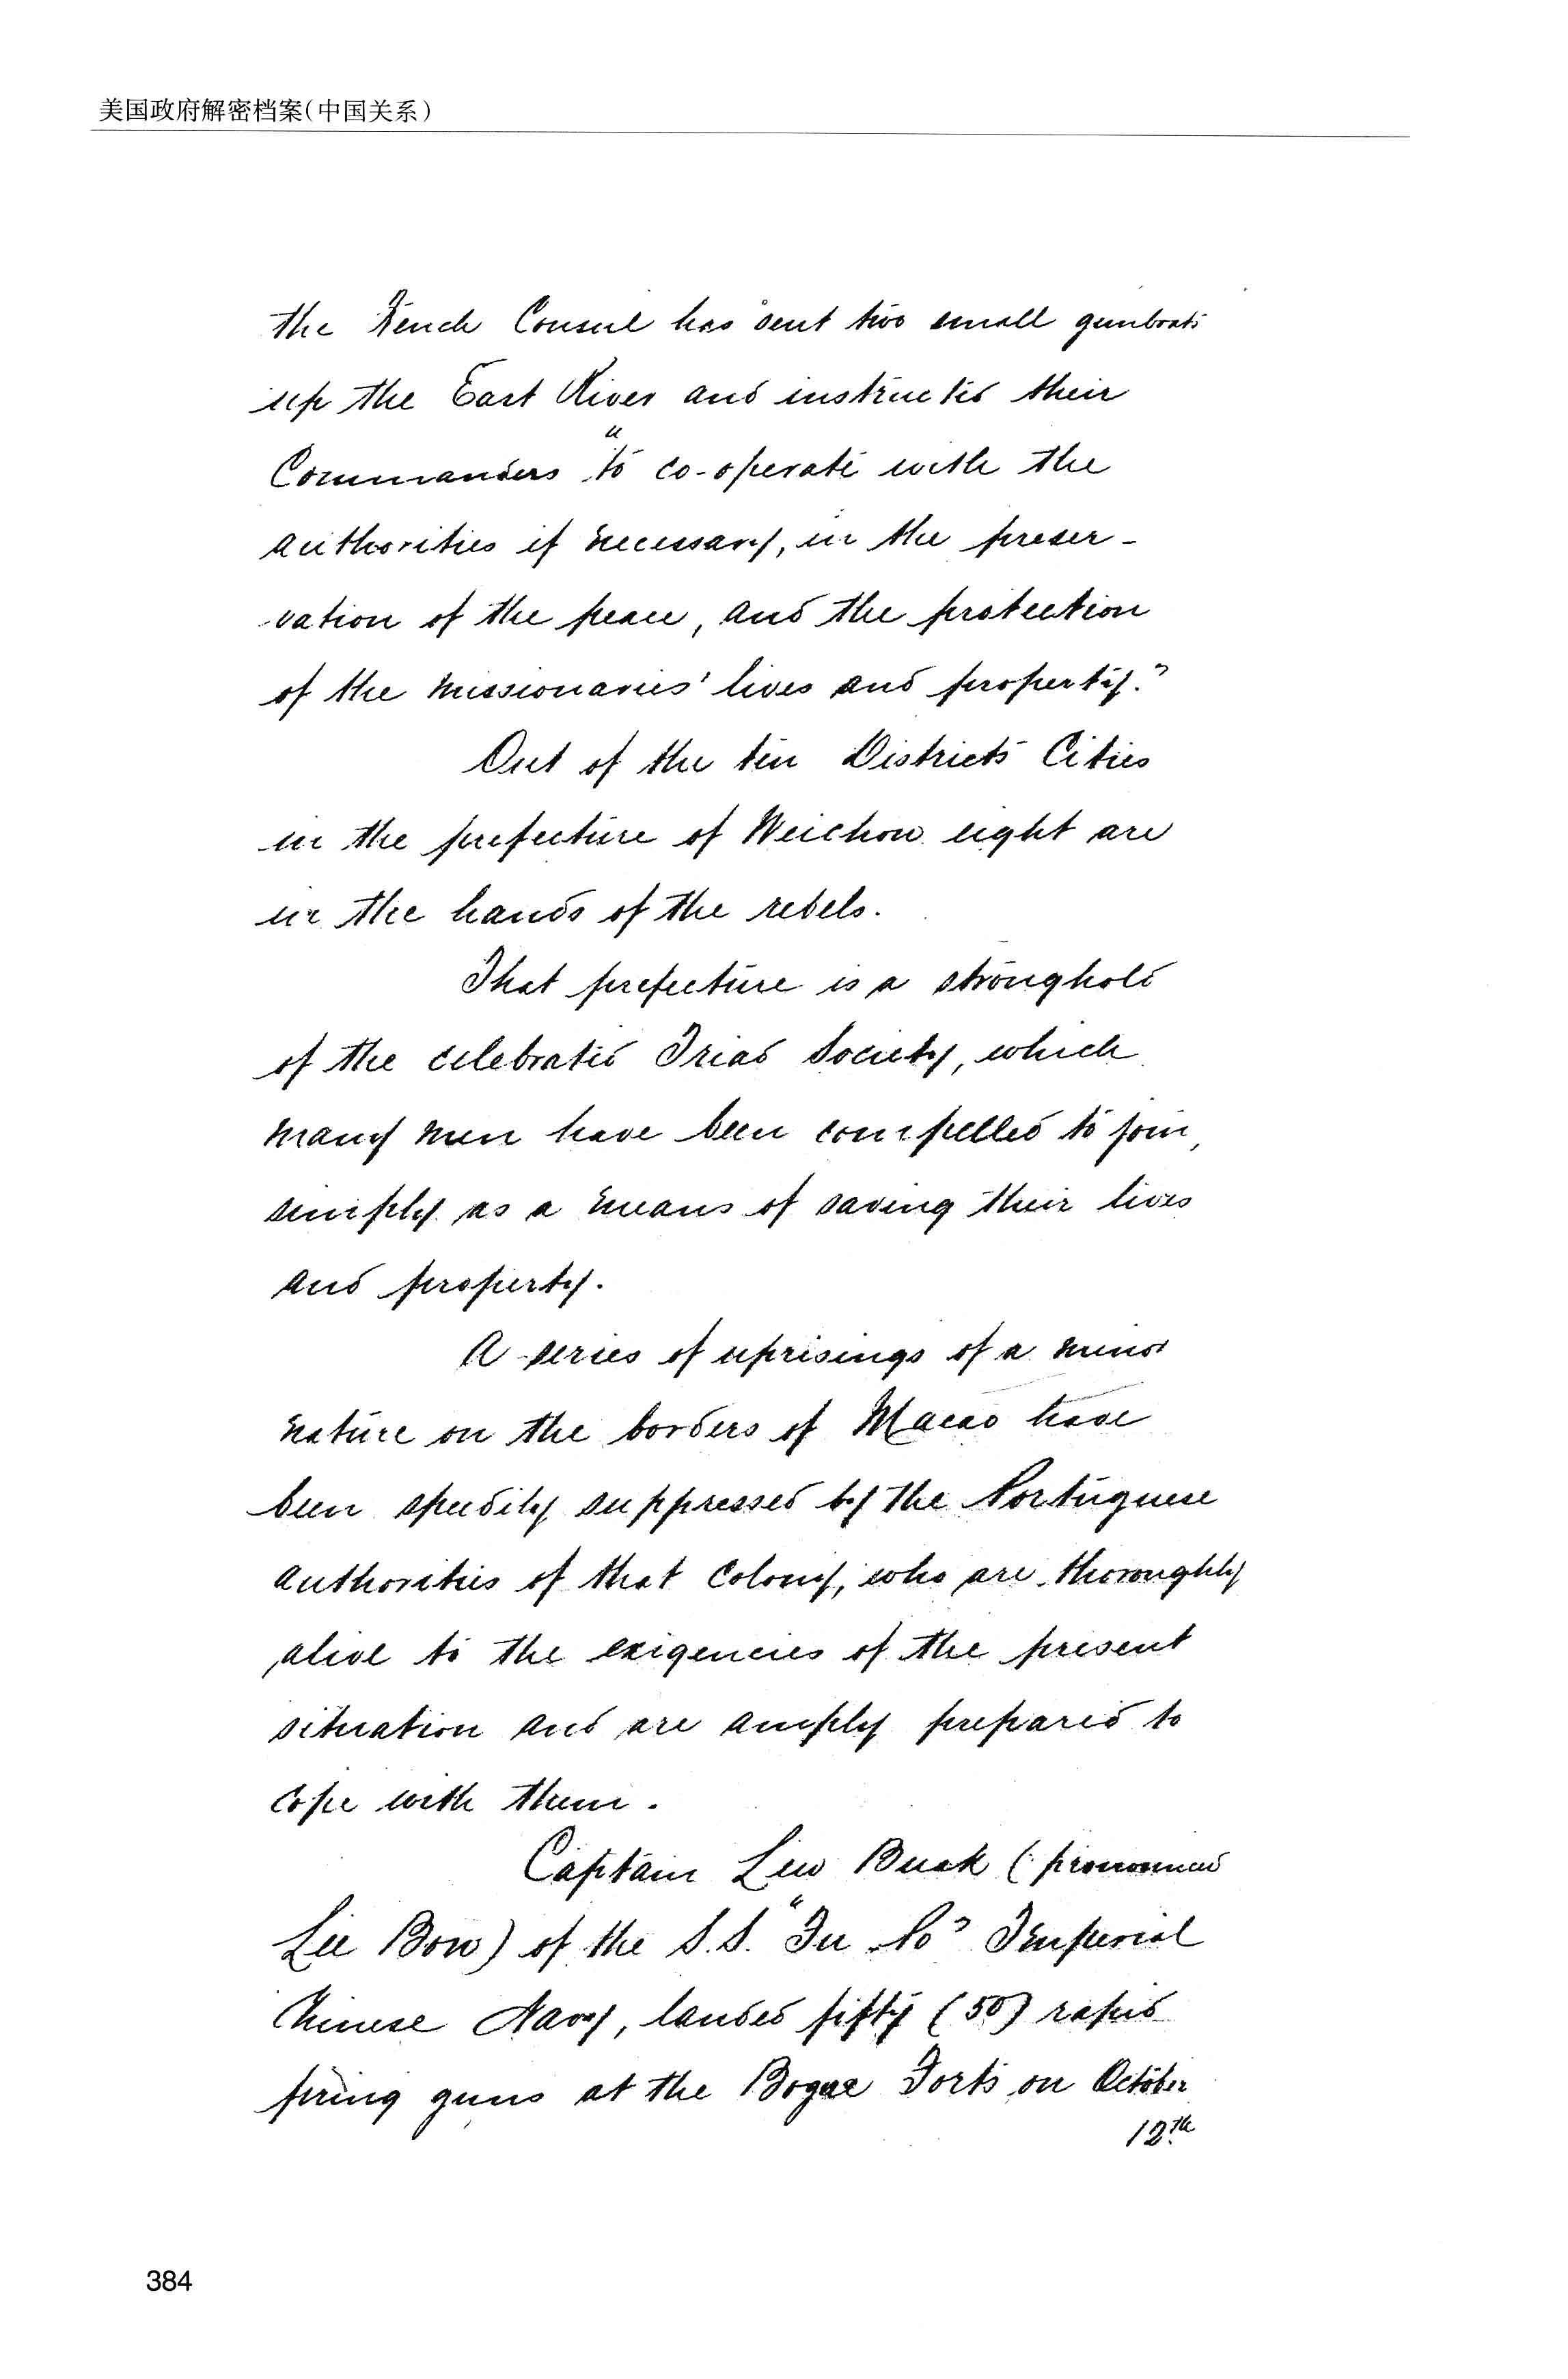 美国政府解密档案(中国关系)
the French Consul has sent two small gunboats
up the East River and instructed their
Commanders "to co-operate with the
authorities if necessary, in the preser-
-vation of the peace, and the protection
of the missionaries' lives and property."
Out of the ten Districts Cities
in the prefecture of Weichow eight are
in the hands of the rebels.
That prefecture is a stronghold
of the celebrated Triad Society, which
many men have been compelled to join,
simply as a means of saving their lives
and property.
A series of uprisings of a minor
nature on the borders of Macao have
been speedily suppressed by the Portuguese
authorities of that Colony, who are thoroughly
alive to the exigencies of the present
situation and are amply prepared to
cope with them.
Captain Lew Buak (pronounced
Lee Bow) of the S.S. "Fu Po" Imperial
Chinese Navy, landed fifty (50) rapid
firing guns at the Bogue Forts on October
12th
384